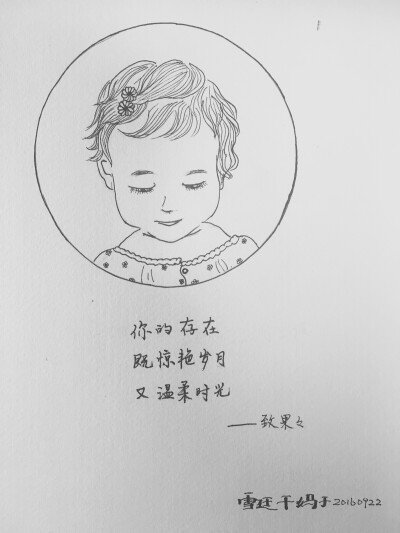 你的存在
既惊艳岁月
又温柔时光
——致果々
雪廷干妈于20160922